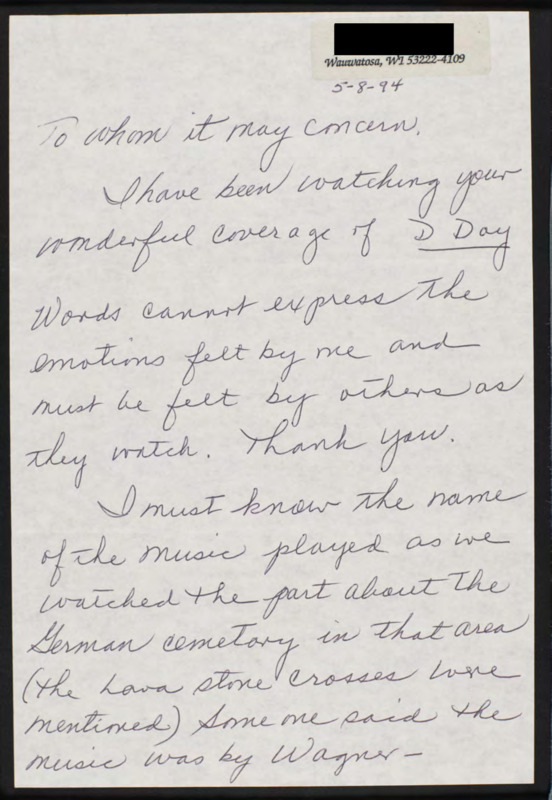 Wauwatosa, WI 53222-4109
5-8-94
To whom it may concern,
I have been watching your
wonderful coverage of D Day
Words cannot express the
emotions felt by me and
must be felt by others as
they watch. Thank you.
I must know the name
of the music played as we
watched the part about the
German cemetary in that area
(the Lava stone crosses were
mentioned) Some one said the
music was by Wagner—